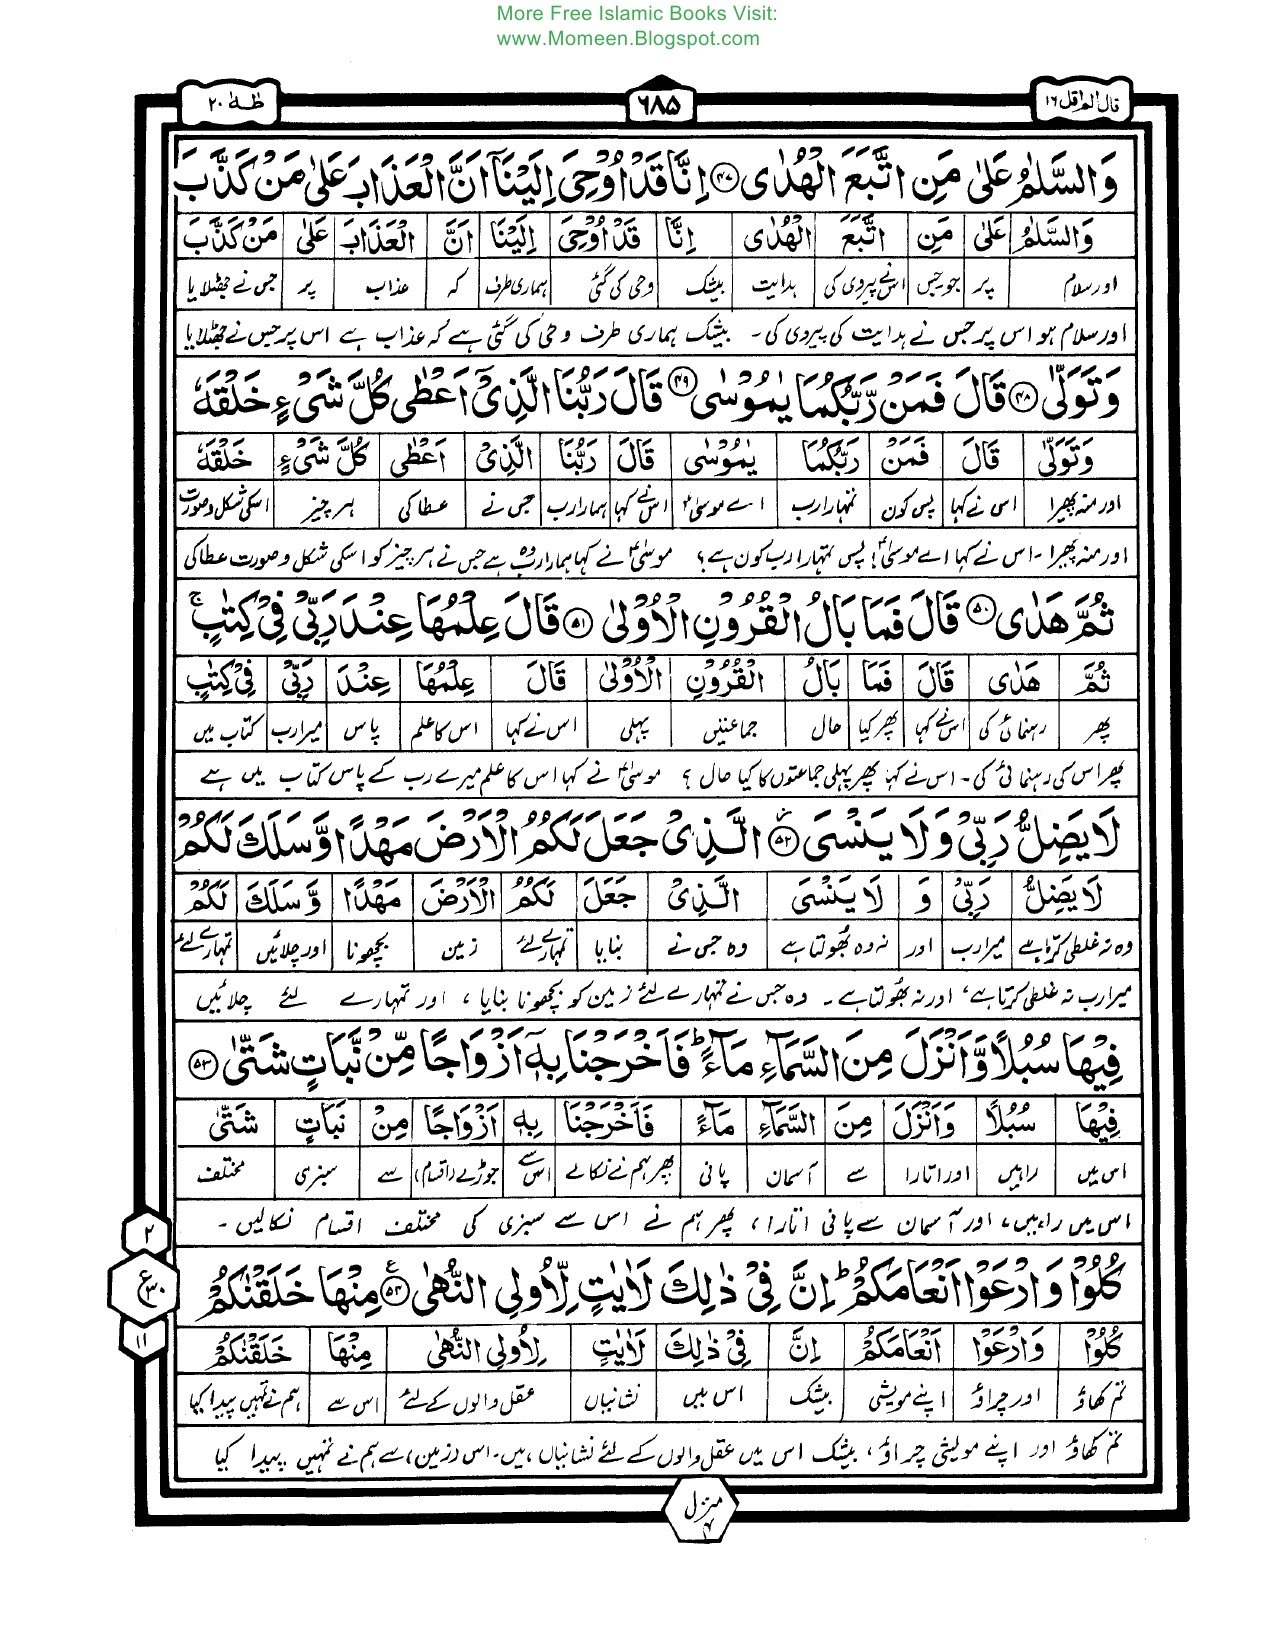 More Free Islamic Books Visit:
www.Momeen.Blogspot.com
قال الم اقل ۱۶
۶۸۵
طٰهٰ ۲۰
وَالسَّلٰمُ عَلٰى مَنِ اتَّبَعَ الْهُدٰى ﴿۴۷﴾ اِنَّا قَدْ اُوْحِىَ اِلَيْنَاۤ اَنَّ الْعَذَابَ عَلٰى مَنْ كَذَّبَ
وَالسَّلٰمُ عَلٰى مَنِ اتَّبَعَ الْهُدٰى اِنَّا قَدْ اُوْحِىَ اِلَيْنَا اَنَّ الْعَذَابَ عَلٰى مَنْ كَذَّبَ
اور سلام پر جو جس اس نے پیروی کی ہدایت بیشک وحی کی گئی ہماری طرف کہ عذاب پر جس نے جھٹلایا
اور سلام ہو اس پر جس نے ہدایت کی پیروی کی۔ بیشک ہماری طرف وحی کی گئی ہے کہ عذاب ہے اس پر جس نے جھٹلایا
وَتَوَلّٰى ﴿۴۸﴾ قَالَ فَمَنْ رَّبُّكُمَا يٰمُوْسٰى ﴿۴۹﴾ قَالَ رَبُّنَا الَّذِىْۤ اَعْطٰى كُلَّ شَىْءٍ خَلْقَهٗ
وَتَوَلّٰى قَالَ فَمَنْ رَبُّكُمَا يٰمُوْسٰى قَالَ رَبُّنَا الَّذِىْ اَعْطٰى كُلَّ شَىْءٍ خَلْقَهٗ
اور منہ پھیرا اس نے کہا پس کون تمہارا رب اے موسیٰؑ اس نے کہا ہمارا رب جس نے عطا کی ہر چیز اسکی شکل و صورت
اور منہ پھیرا۔ اس نے کہا اے موسیٰؑ! پس تمہارا رب کون ہے؟ موسیٰؑ نے کہا ہمارا رب وہ ہے جس نے ہر چیز کو اسکی شکل و صورت عطا کی
ثُمَّ هَدٰى ﴿۵۰﴾ قَالَ فَمَا بَالُ الْقُرُوْنِ الْاُوْلٰى ﴿۵۱﴾ قَالَ عِلْمُهَا عِنْدَ رَبِّىْ فِىْ كِتٰبٍ ۚ
ثُمَّ هَدٰى قَالَ فَمَا بَالُ الْقُرُوْنِ الْاُوْلٰى قَالَ عِلْمُهَا عِنْدَ رَبِّىْ فِىْ كِتٰبٍ
پھر رہنمائی کی اس نے کہا پھر کیا حال جماعتیں پہلی اس نے کہا اس کا علم پاس میرا رب کتاب میں
پھر اس کی رہنمائی کی۔ اس نے کہا پھر پہلی جماعتوں کا کیا حال؟ موسیٰؑ نے کہا اس کا علم میرے رب کے پاس کتاب میں ہے
لَا يَضِلُّ رَبِّىْ وَلَا يَنْسَى ﴿۵۲﴾ الَّذِىْ جَعَلَ لَكُمُ الْاَرْضَ مَهْدًا وَّسَلَكَ لَكُمْ
لَا يَضِلُّ رَبِّىْ وَ لَا يَنْسَى الَّذِىْ جَعَلَ لَكُمُ الْاَرْضَ مَهْدًا وَّسَلَكَ لَكُمْ
وہ نہ غلطی کرتا ہے میرا رب اور نہ وہ بھولتا ہے وہ جس نے بنایا تمہارے لئے زمین بچھونا اور چلائیں تمہارے لئے
میرا رب نہ غلطی کرتا ہے، اور نہ بھولتا ہے۔ وہ جس نے تمہارے لئے زمین کو بچھونا بنایا، اور تمہارے لئے چلائیں
فِيْهَا سُبُلًا وَّاَنْزَلَ مِنَ السَّمَآءِ مَآءً ؕ فَاَخْرَجْنَا بِهٖۤ اَزْوَاجًا مِّنْ نَّبَاتٍ شَتّٰى ﴿۵۳﴾
فِيْهَا سُبُلًا وَاَنْزَلَ مِنَ السَّمَآءِ مَآءً فَاَخْرَجْنَا بِهٖ اَزْوَاجًا مِنْ نَبَاتٍ شَتّٰى
اس میں راہیں اور اتارا سے آسمان پانی پھر ہم نے نکالے اس سے جوڑے (اقسام) سے سبزی مختلف
اس میں راہیں، اور آسمان سے پانی اتارا، پھر ہم نے اس سے سبزی کی مختلف اقسام نکالیں۔
كُلُوْا وَارْعَوْا اَنْعَامَكُمْ ؕ اِنَّ فِىْ ذٰلِكَ لَاٰيٰتٍ لِّاُولِى النُّهٰى ﴿۵۴﴾ ع مِنْهَا خَلَقْنٰكُمْ
كُلُوْا وَارْعَوْا اَنْعَامَكُمْ اِنَّ فِىْ ذٰلِكَ لَاٰيٰتٍ لِاُولِى النُّهٰى مِنْهَا خَلَقْنٰكُمْ
تم کھاؤ اور چراؤ اپنے مویشی بیشک اس میں نشانیاں عقل والوں کے لئے اس سے ہم نے تمہیں پیدا کیا
تم کھاؤ اور اپنے مویشی چراؤ، بیشک اس میں عقل والوں کے لئے نشانیاں ہیں۔ اس (زمین) سے ہم نے تمہیں پیدا کیا
۲
ع ۳۰
۱۱
منزل ۴